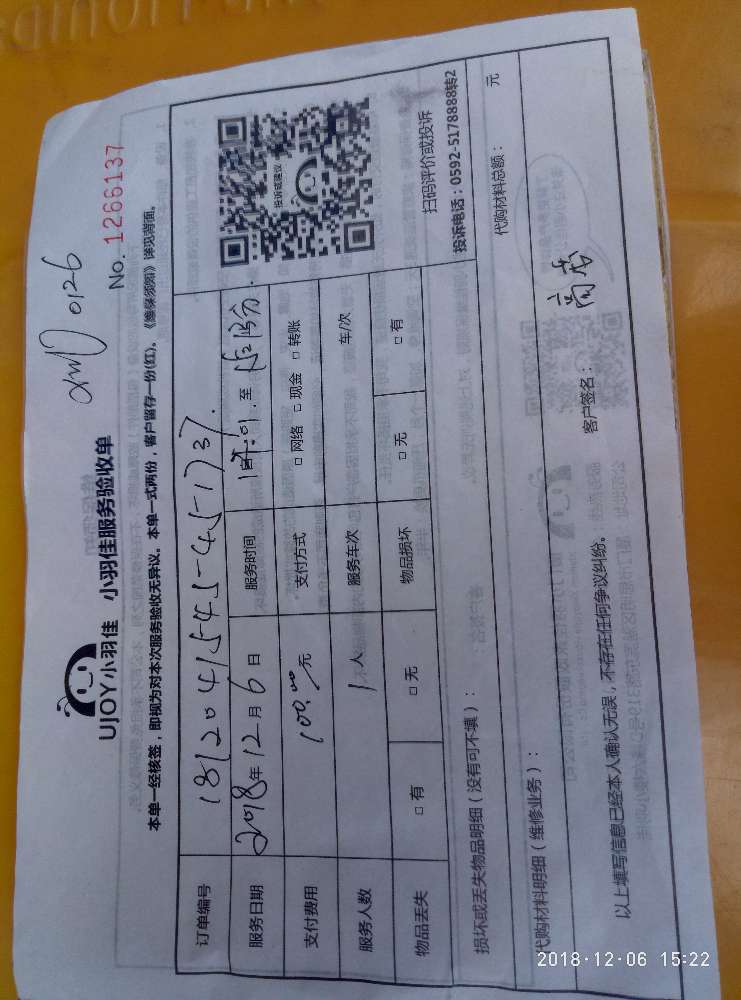 xm 0126
UJOY小羽佳 小羽佳服务验收单
No. 1266137
本单一经核签，即视为对本次服务验收无异议。本单一式两份，客户留存一份(红)。《维保须知》详见背面。
订单编号 181204154545451737
服务日期 2018年12月6日 服务时间 至
支付费用 100.00元 支付方式 □网络 □现金 □转账
服务人数 1人 服务车次 车/次
物品丢失 □有 □无 物品损坏 □无 □有
投诉或建议
扫码评价或投诉
投诉电话：0592-5178888转2
损坏或丢失物品明细（没有可不填）：
代购材料明细（维修业务）： 代购材料总额： 元
以上填写信息已经本人确认无误，不存在任何争议纠纷。 客户签名：
2018·12·06 15:22